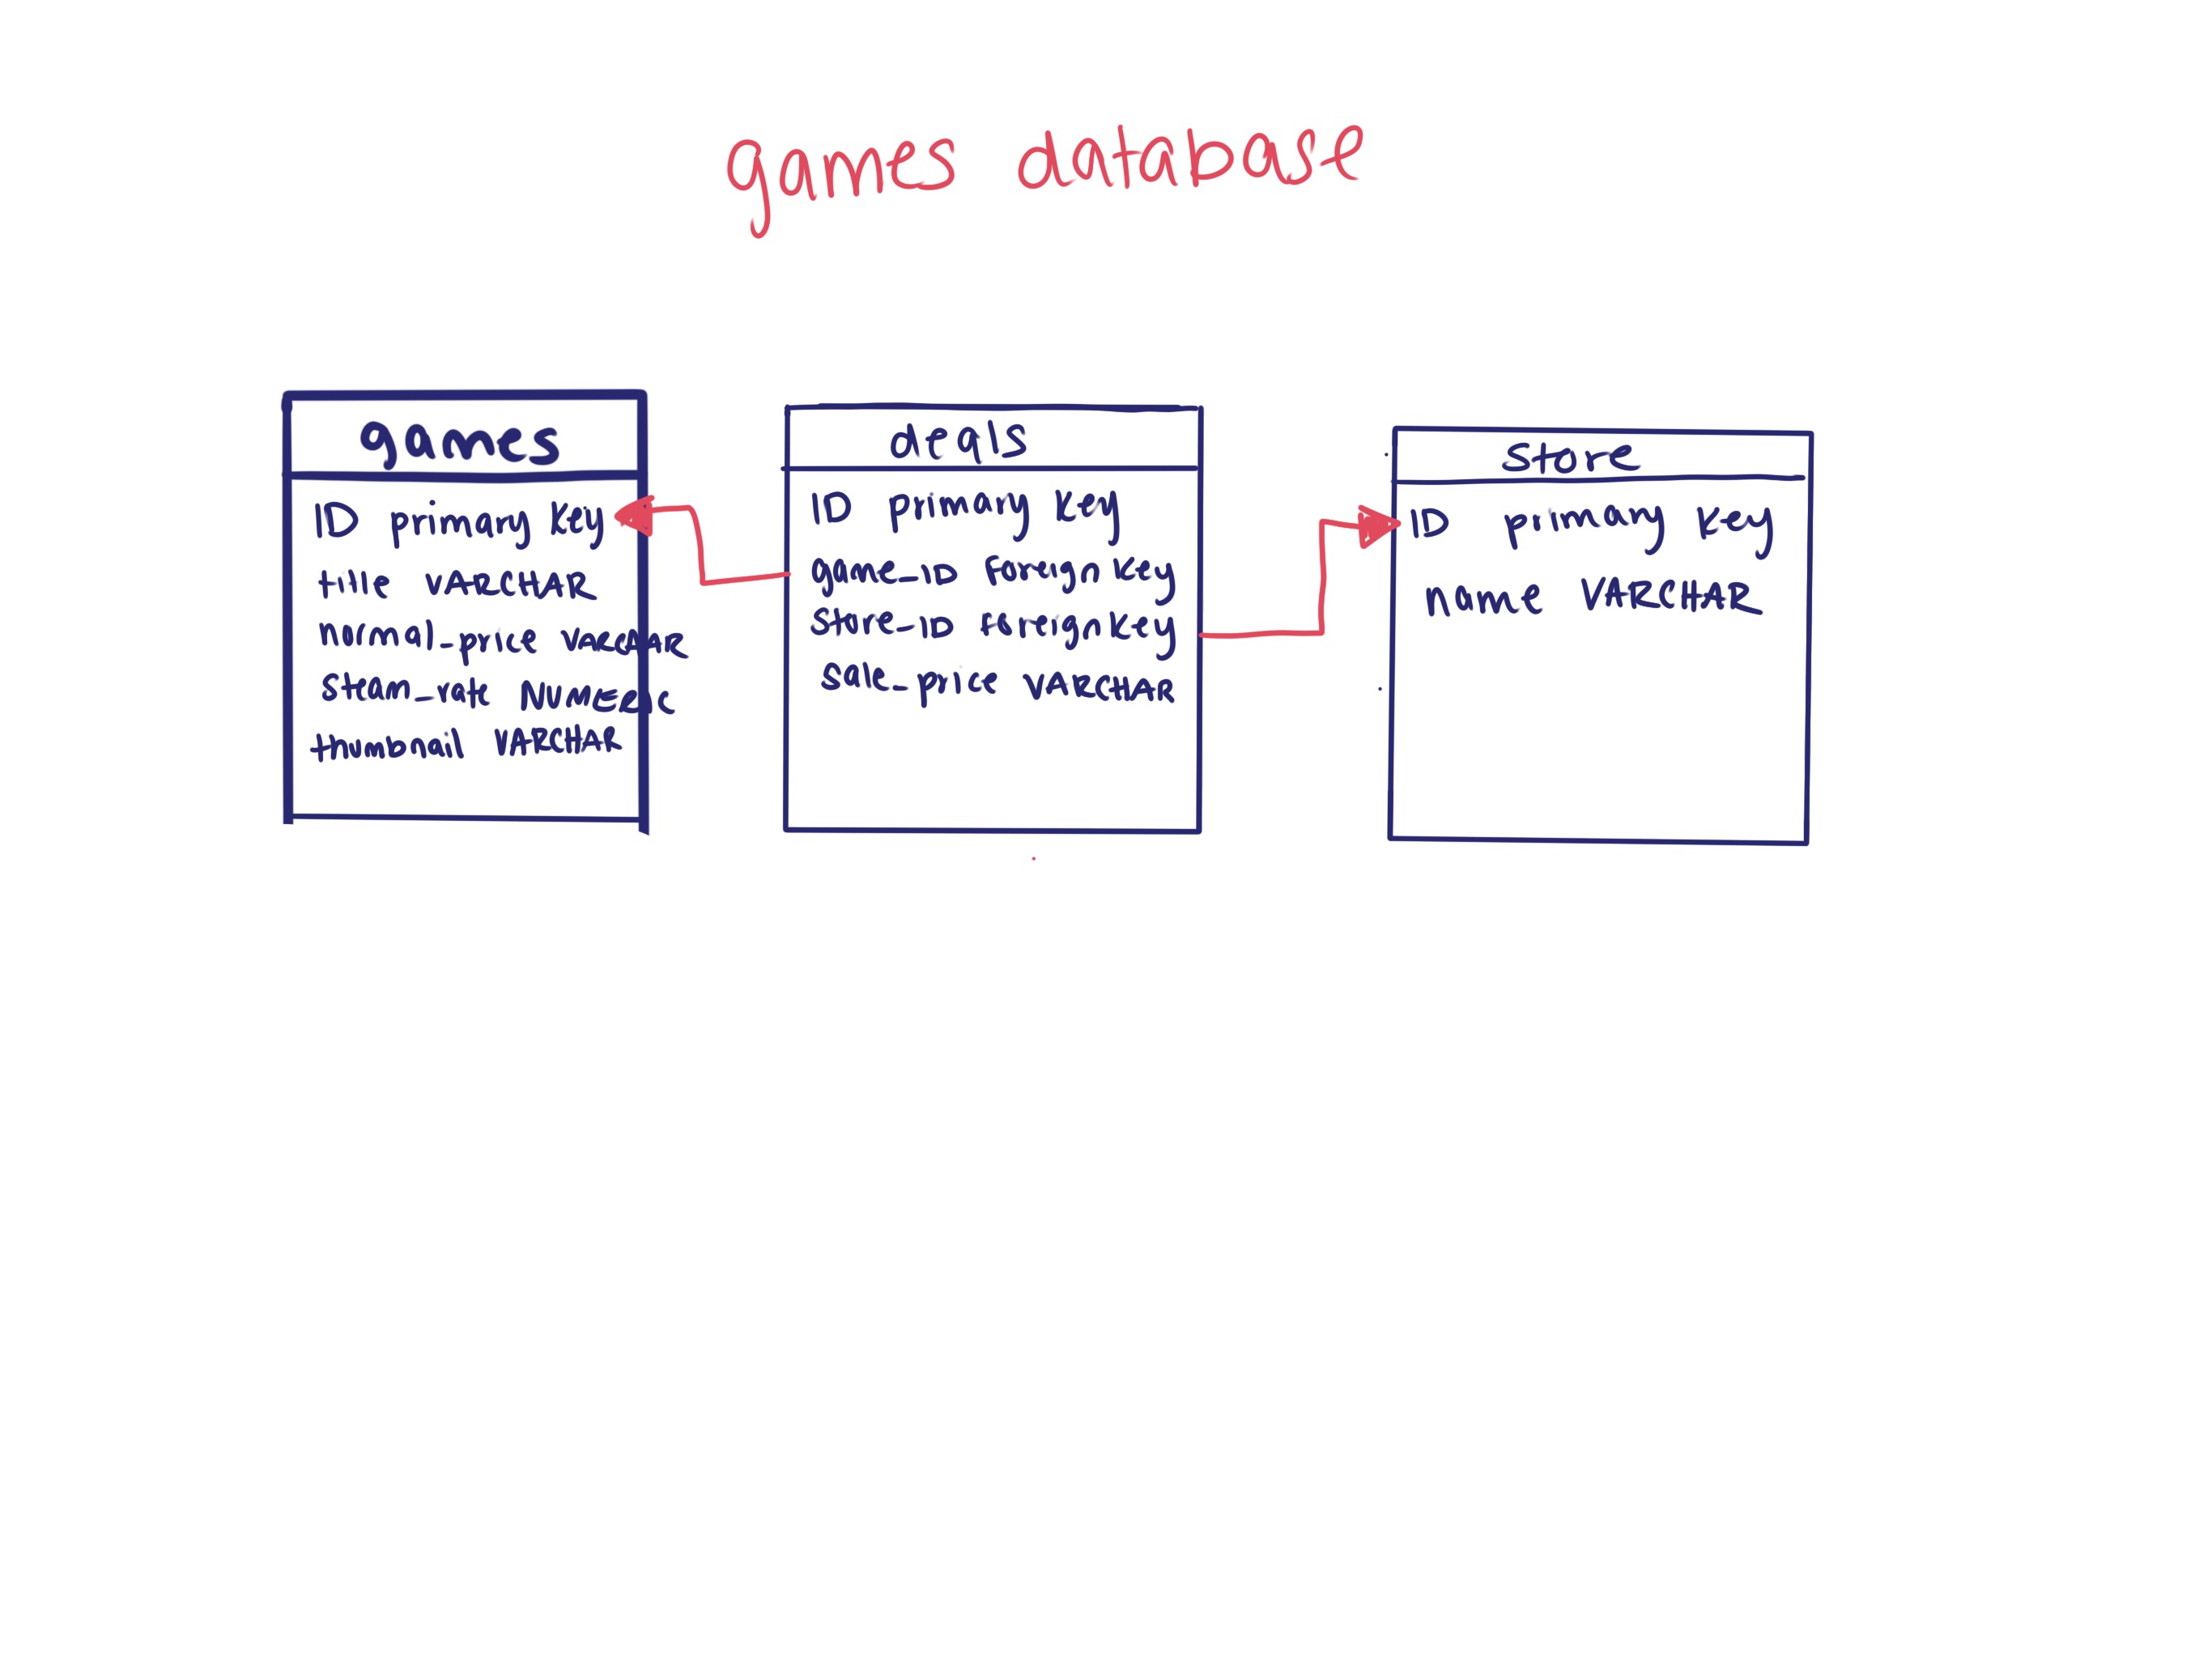 games database
games
ID primary key
title VARCHAR
normal_price VARCHAR
steam_rate NUMERIC
thumbnail VARCHAR
deals
ID primary key
game_ID foreign key
store_ID foreign key
sale_price VARCHAR
store
ID primary key
name VARCHAR